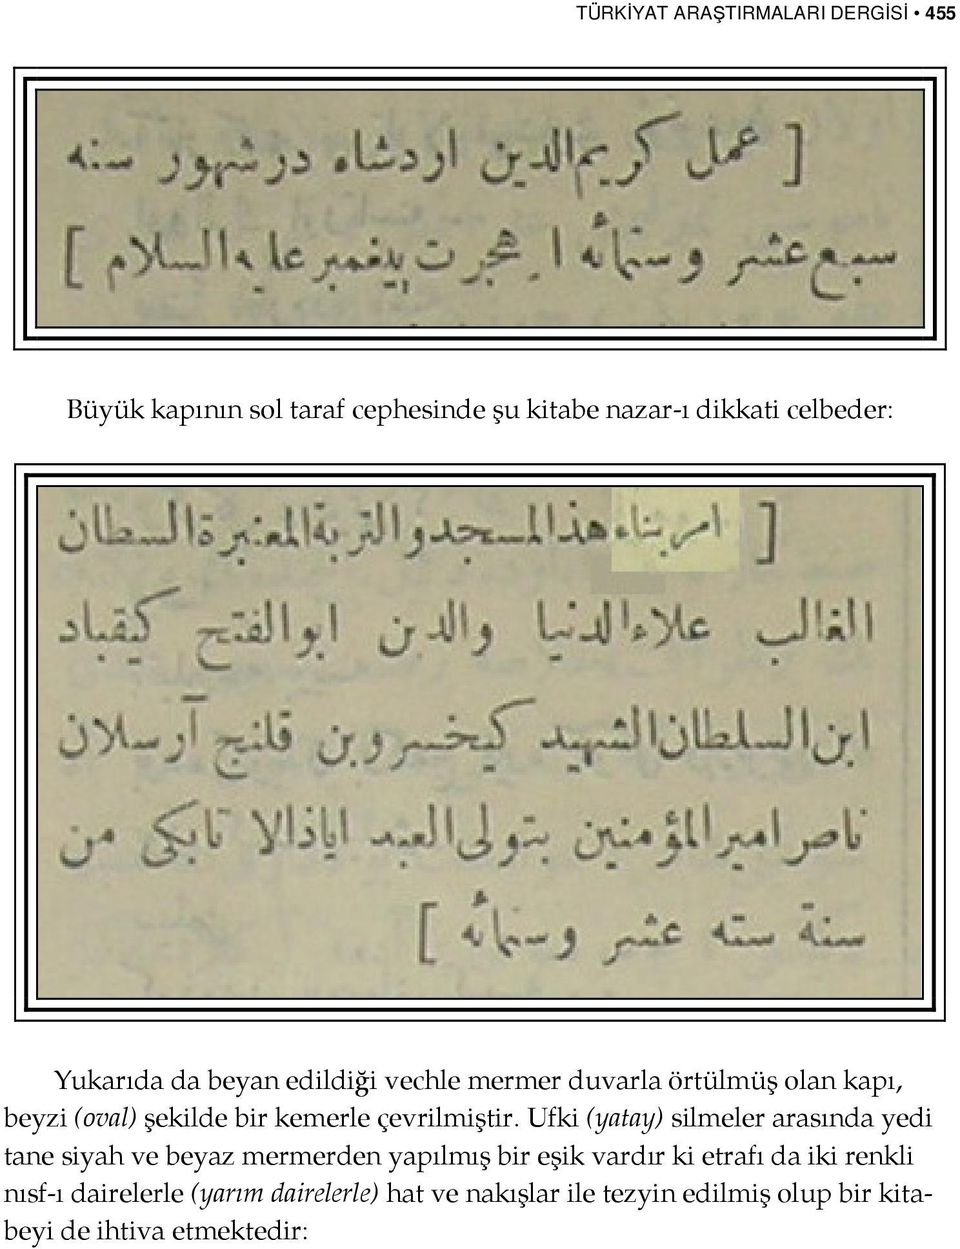 TÜRKİYAT ARAŞTIRMALARI DERGİSİ • 455
[ عمل كريم الدين اردشاه در شهور سنه
سبع عشر وستمأنه از هجرت پيغمبر عليه السلام ]
Büyük kapının sol taraf cephesinde şu kitabe nazar-ı dikkati celbeder:
[ امر بناء هذا المسجد والتربة المعتبرة السطان
الغالب علاء الدنيا والدين ابو الفتح كيقباد
ابن السلطان الشهيد كيخسرو بن قلنج آرسلان
ناصر امير المؤمنين بتولى العبد اياذ الا تابكى من
سنة سته عشر وستمأنه ]
Yukarıda da beyan edildiği vechle mermer duvarla örtülmüş olan kapı,
beyzi (oval) şekilde bir kemerle çevrilmiştir. Ufki (yatay) silmeler arasında yedi
tane siyah ve beyaz mermerden yapılmış bir eşik vardır ki etrafı da iki renkli
nısf-ı dairelerle (yarım dairelerle) hat ve nakışlar ile tezyin edilmiş olup bir kita-
beyi de ihtiva etmektedir: